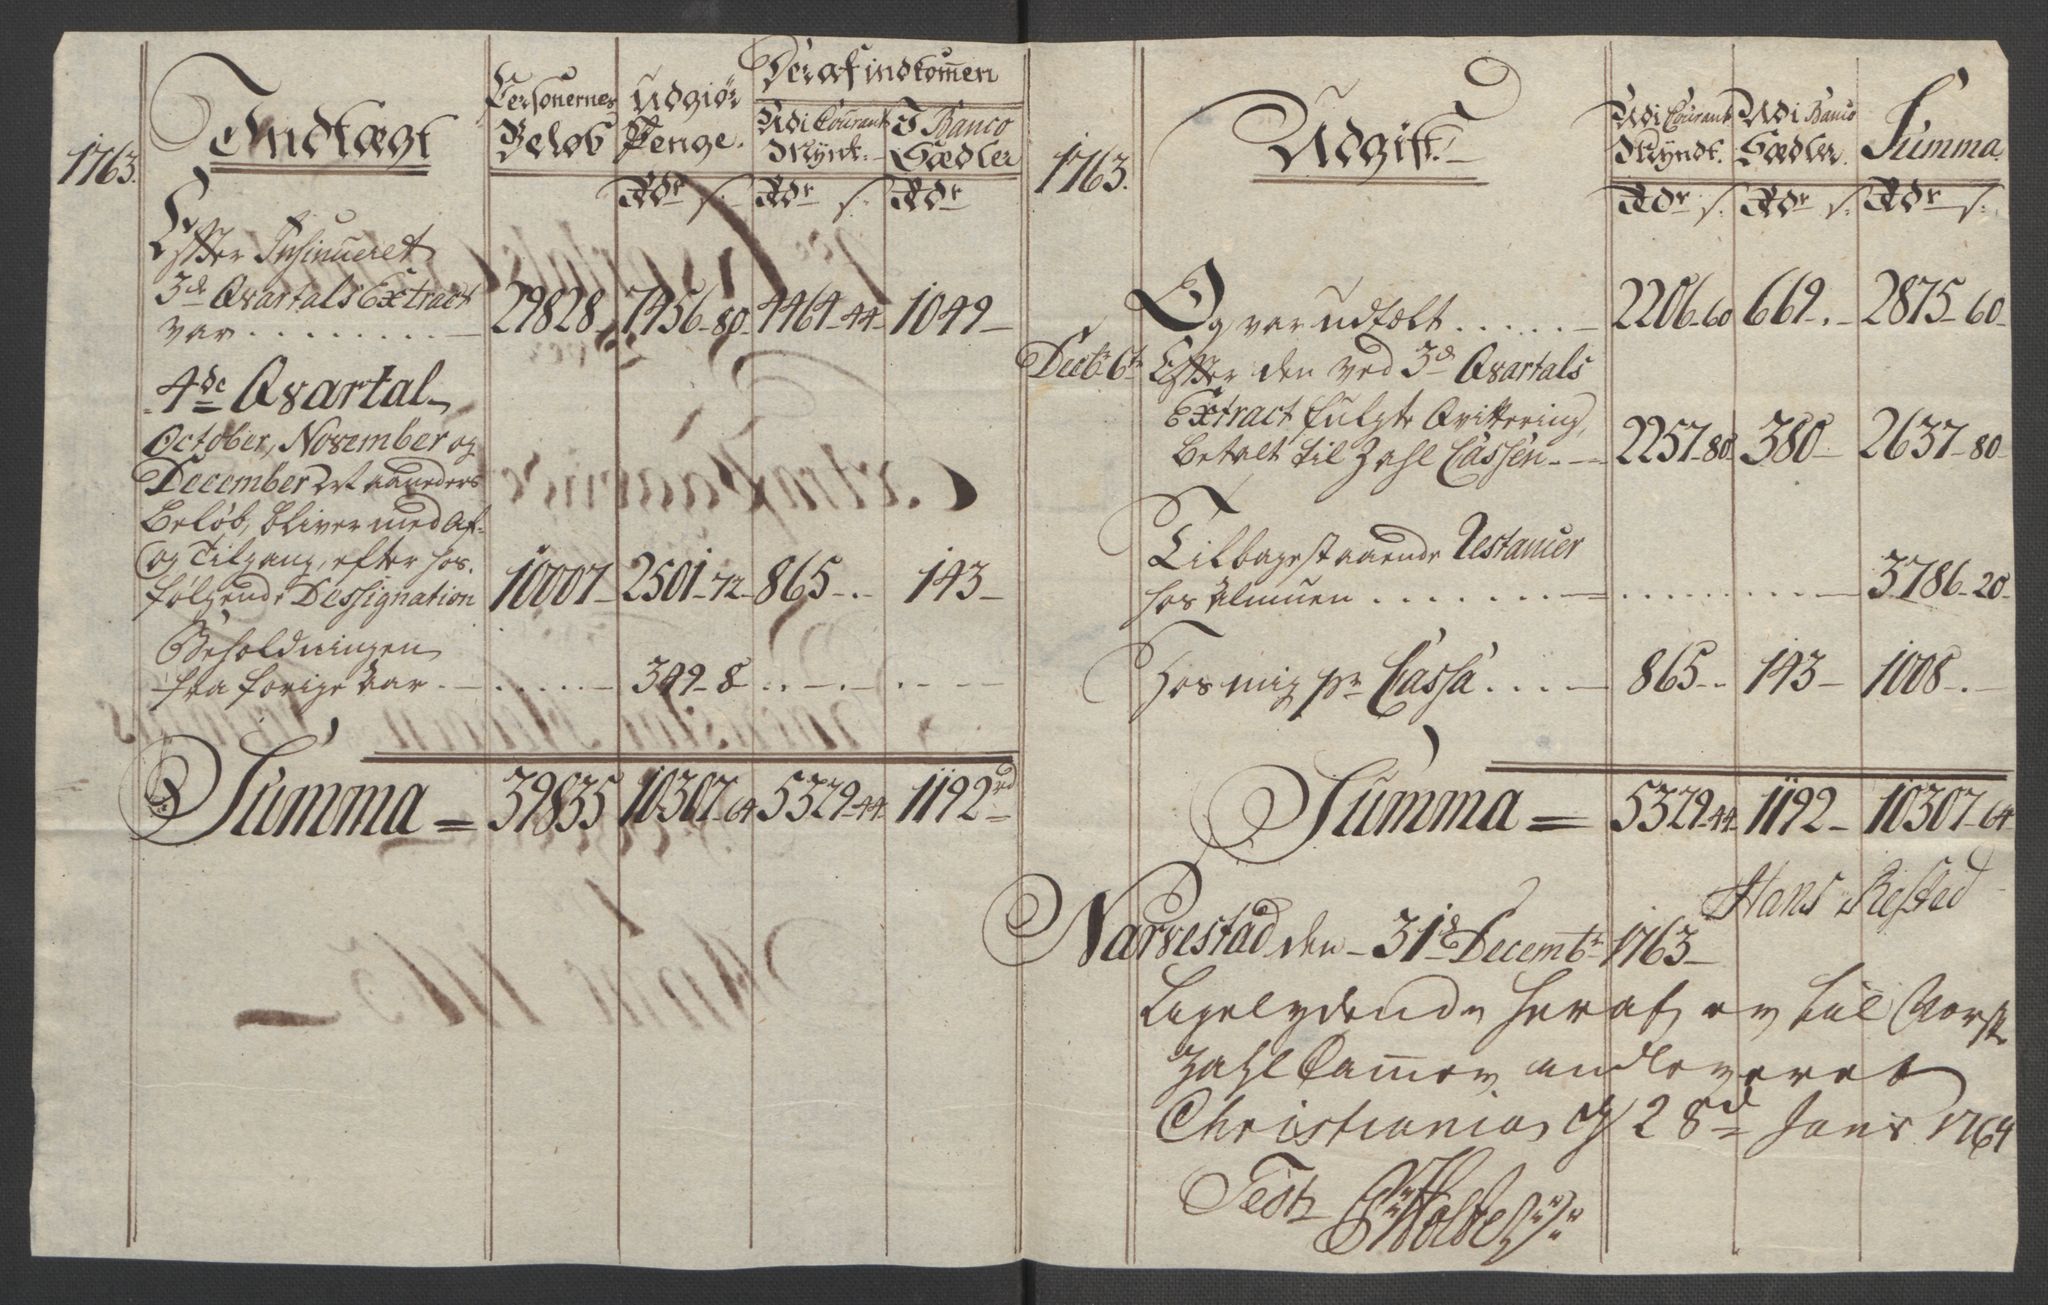 1763.
Indtægt
Personernes Beløb
Udgiør Penge.
Deraf indkommen
Udi Courant Mynt.
I Banco Sædler
Rdr s. Rdr s. Rdr
Efter Insinueret
3de Qvartals Extract
var ........ 29828 - 7456-80 4464-44 1049
4de Qvartal
October, November og
December
Beløb, bliver med Af-
og Tilgang, efter hos-
følgende Dessignation 10007 2501-72 865-. 143
Beholdningen
fra forige Aar ..... 349-8
Summa = 39835 10307-64 5329-44 1192 rd
1763.
Udgift
Udi Courant Myndt.
Udi Banco Sædler.
Summa
Rdr s. Rdr s. Rdr s.
Og var udtælt ..... 2206-60 669-. 2875-60
Decbr 6te Efter den ved 3de Qvartals
Extract fulgte Qvittering,
betalt til Zahl Cassen 2257-80 380 2637-80
Tilbagestaaende Restancer
hos Almuen ........ 3786-20
Hos mig pr Cassa .... 865-. 143 1008-.
Summa = 5329-44 1192 10307-64
Hans Restad
Narvestad den 31de Decembr 1763
Ligelydende heraf er til
Zahl Cammer anleveret
Christiania 28de Janr 1764
Test